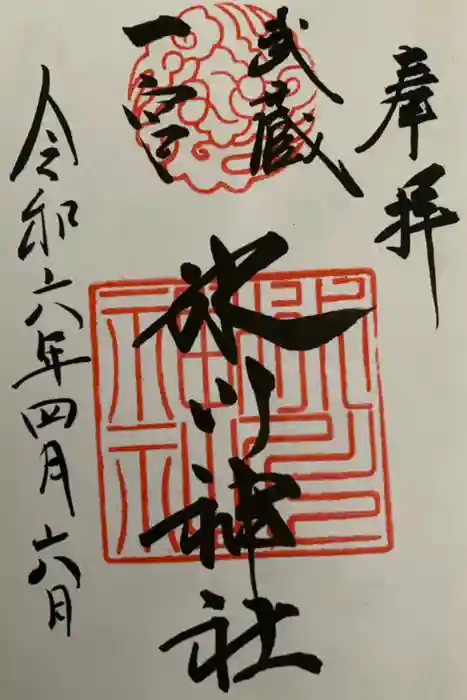 奉拝
武蔵
一宮
氷川神社
令和六年四月六日